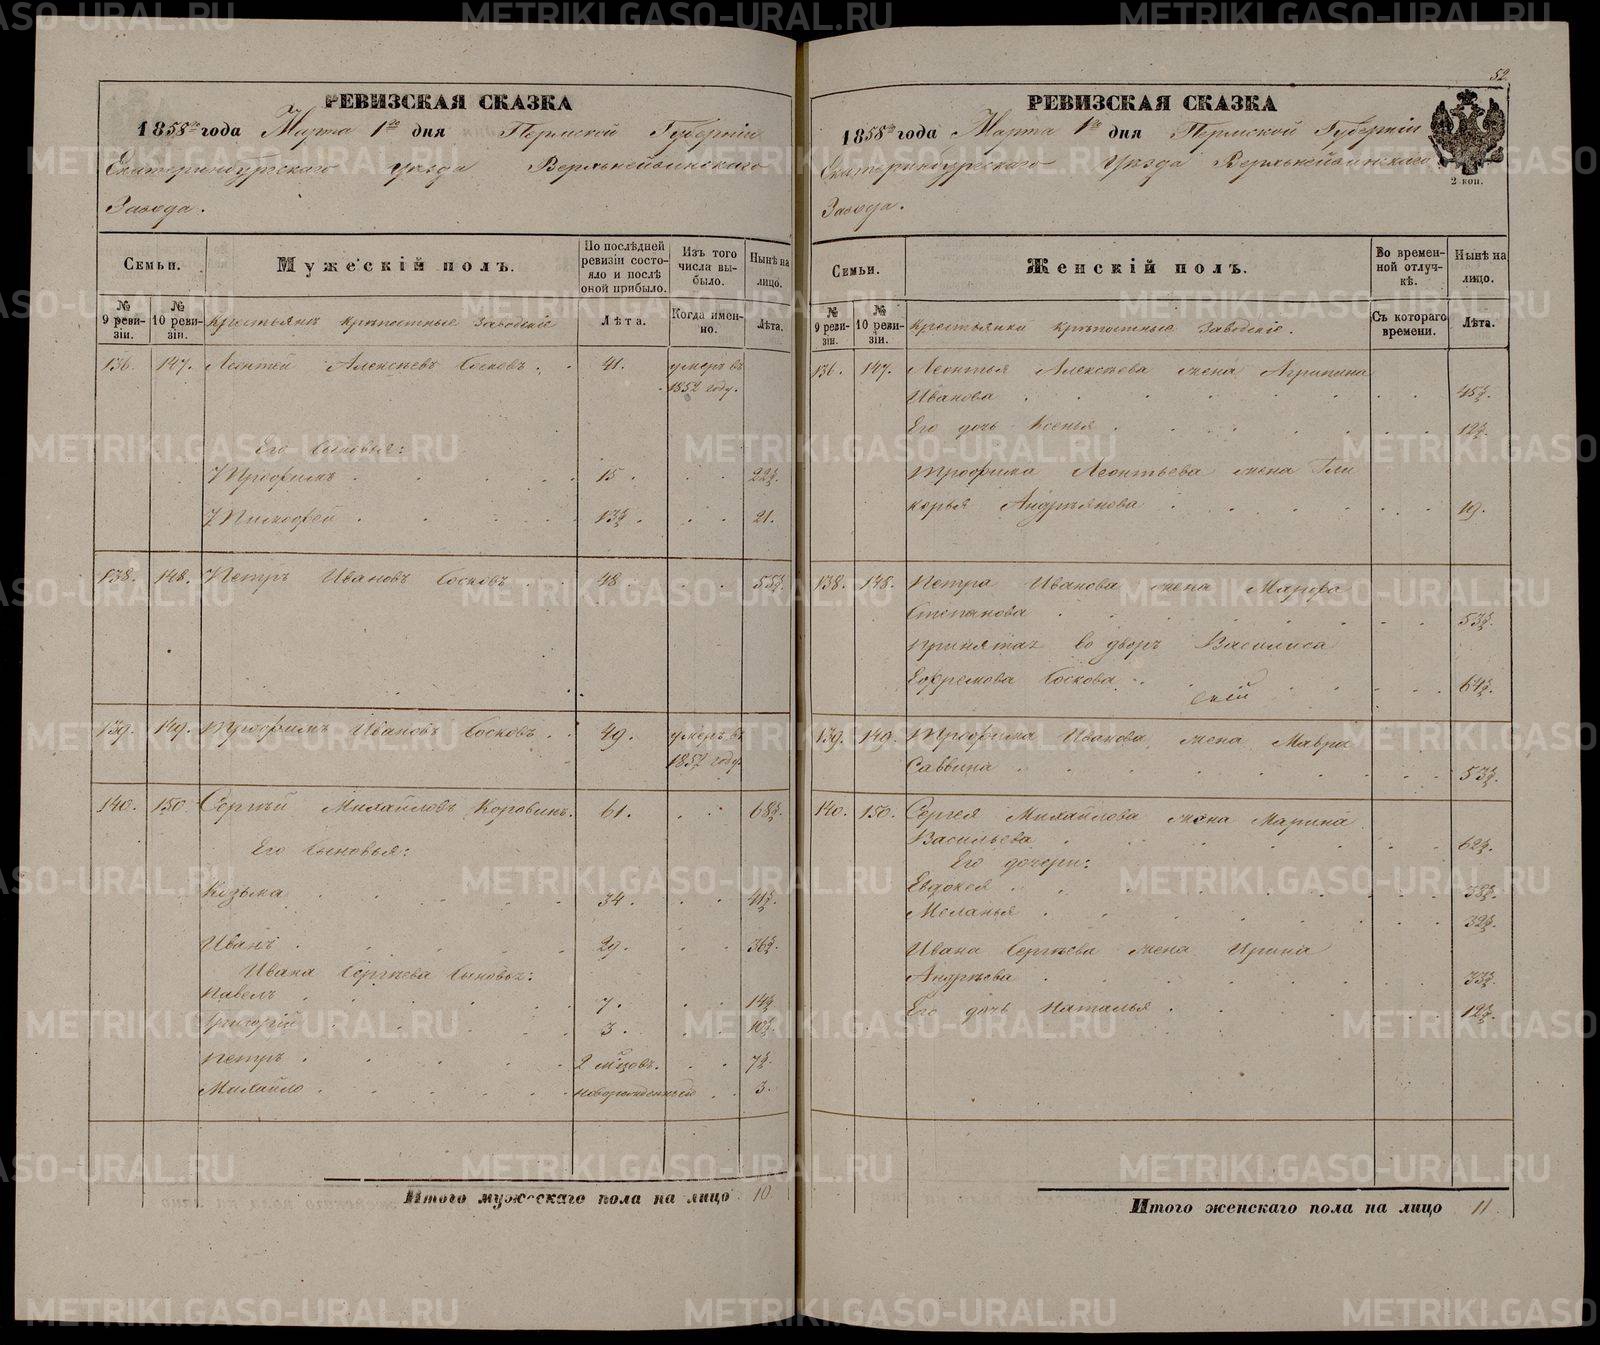 РЕВИЗСКАЯ СКАЗКА
1858го года Марта 1го дня Пермской Губерніи
Екатеринбургскаго уѣзда Верхънейвинскаго
Завода.
Семьи.
Мужескій полъ.
По послѣдней ревизіи состояло и послѣ оной прибыло.
Изъ того числа выбыло.
Нынѣ на лицо.
№ 9 ревизіи.
№ 10 ревизіи.
Крестьянъ крѣпостные заводскіе
Лѣта.
Когда именно.
Лѣта.
136. 147. Леонтей Алексѣевъ Сосковъ. 41. умеръ въ
1852 году.
Его Сыновья:
Трофимъ 15. 22½.
Тимофей 13½. 21.
138. 148. Петръ Ивановъ Сосковъ 48. 55½.
139. 149. Трофимъ Ивановъ Сосковъ. 49. умеръ въ
1857 году.
140. 150. Сергѣй Михайловъ Коровинъ. 61. 68½.
Его Сыновья:
Козьма 34. 41½.
Иванъ 29. 36½.
Ивана Сергѣева Сыновья:
Павелъ 7. 14½.
Григорій 3. 10½.
Петръ 2 мѣцовъ. 7½.
Михайло новорожденный 3.
Итого мужескаго пола на лицо 10.
52
РЕВИЗСКАЯ СКАЗКА
1858го года Марта 1го дня Пермской Губерніи
Екатеринбургскаго Уѣзда Верхънейвинскаго
Завода.
2 коп.
Семьи.
Женскій полъ.
Во временной отлучкѣ.
Нынѣ на лицо.
№ 9 ревизіи.
№ 10 ревизіи.
Крестьянки крѣпостные заводскіе.
Съ котораго времени.
Лѣта.
136. 147. Леонтья Алексѣева жена Агрипина
Иванова 45½.
Его дочь Ксенья 12½.
Трофима Леонтьева жена Гли
керья Андреянова 19.
138. 148. Петра Иванова жена Марфа
Степанова 53½.
принятая во дворъ Василиса
Ефремова Соскова 64½.
139. 149. Трофима Иванова жена Мавра
Саввина 53½.
140. 150. Сергея Михайлова жена Марина
Васильева 62½.
Его дочери:
Евдокея 33½.
Меланья 32½.
Ивана Сергѣева жена Ирина
Андрѣева 33½.
Его дочь Наталья 12½.
Итого женскаго пола на лицо 11
METRIKI.GASO-URAL.RU